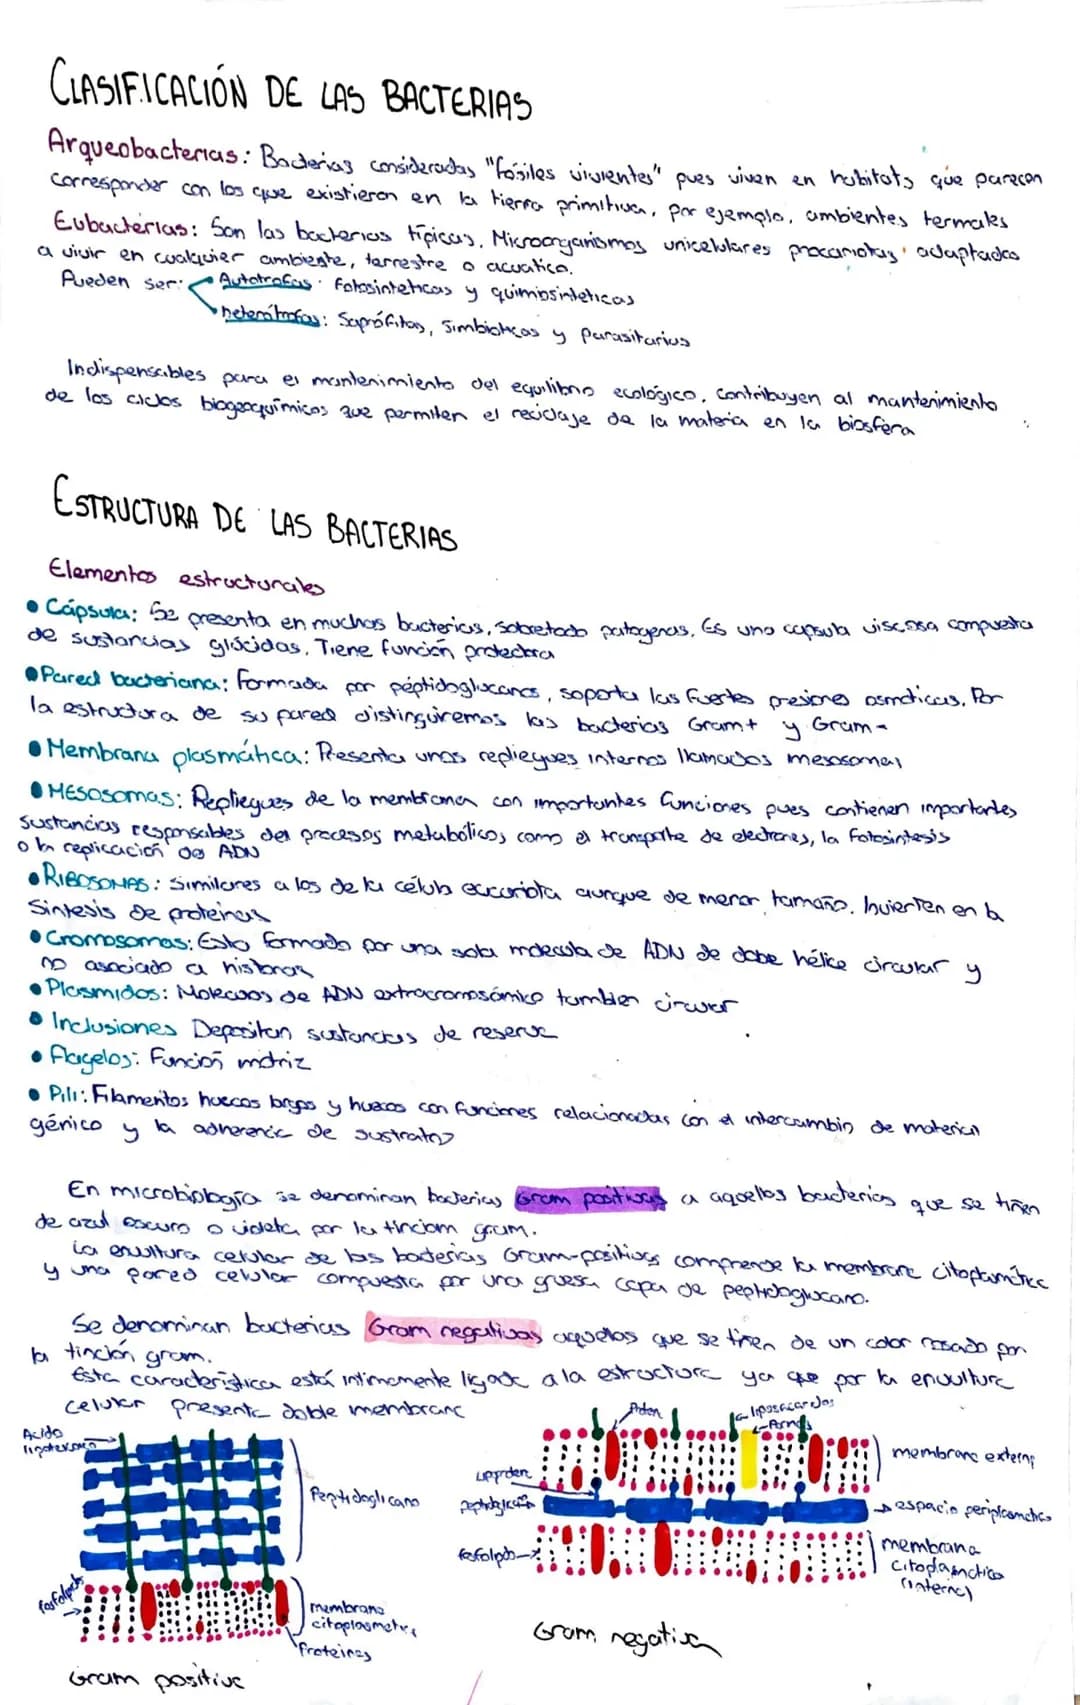 CLASIFICACIÓN DE LAS BACTERIAS
Arqueobacterias: Bacterias consideradas "fósiles vivientes" pues viven en hábitats que parecen
corresponder con los que existieron en la tierra primitiva, por ejemplo, ambientes termales
Eubacterias: Son las bacterias típicas. Microorganismos unicelulares procariotas adaptados
a vivir en cualquier ambiente, terrestre o acuático.
Pueden ser: Autotrofas: Fotosintéticas y quimiosintéticas
heterótrofas: Saprófitas, Simbióticas y parasitarias
Indispensables para el mantenimiento del equilibrio ecológico, contribuyen al mantenimiento
de los ciclos biogeoquímicos que permiten el reciclaje de la materia en la biosfera
ESTRUCTURA DE LAS BACTERIAS
Elementos estructurales
• Cápsula: Se presenta en muchas bacterias, sobretodo patogenas. Es una capsula viscosa compuesta
de sustancias glúcidas. Tiene función protectora
• Pared bacteriana: Formada por péptidoglucanos, soporta las fuertes presiones osmoticas. Por
la estructura de su pared distinguiremos las bacterias Gram+ y Gram-
• Membrana plasmática: Presenta unos repliegues internos llamados mesosomas
• MESOSOMAS: Repliegues de la membrana con importantes funciones pues contienen importantes
sustancias responsables del procesos metabólicos como el transporte de electrones, la fotosíntesis
o la replicación de ADN
• RIBOSOMAS: Similares a los de la célula eucariota aunque de menor tamaño. Invierten en la
Sintesis de proteinas
• Cromosomas: Esta formado por una sola molecula de ADN de doble hélice circular y
no asociado a histonas
• Plasmidos: Moleculas de ADN extracromosómico tambien circular
• Inclusiones Depositan sustancias de reserva
• Flagelos: Función motriz
• Pili: Filamentos huecos largos y huecos con funciones relacionadas con el intercambio de material
génico y la adherencia de sustratos
En microbiología se denominan bacterias Gram positivas a aquellas bacterias que se tiñen
de azul oscuro o violeta por la tinciom gram.
La envultura celular de las bacterias Gram-positivas comprende la membrana citoplamática
y una pared celular compuesta por una gruesa capa de peptidoglucano.
Se denominan bacterias Gram negativas aquellas que se tiñen de un color rosado por
la tinción gram.
Esta característica está intimamente ligada a la estructura ya que por la envultura
celular presenta doble membrana
Acido
Peptidoglicano
fosfolipido
membrana
citoplasmatica
Proteinas
Gram positiva
membrana externa
espacio periplasmatico
membrana
citoplamatica
(interna)
Gram negativa